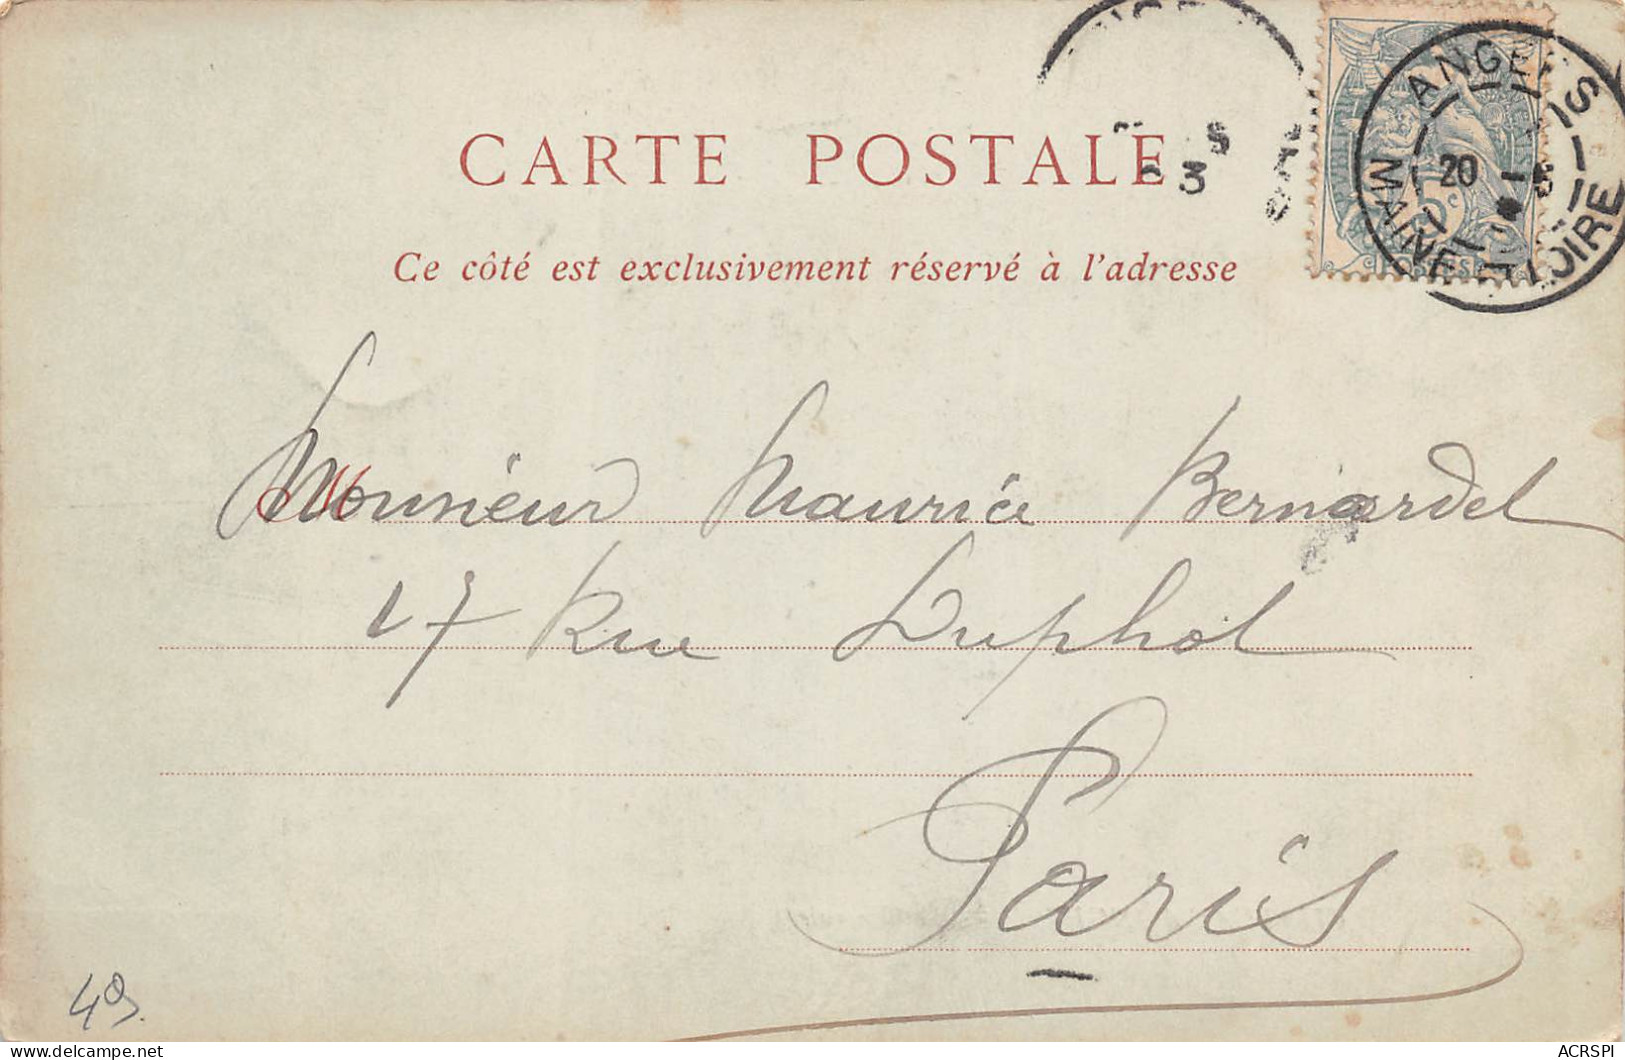 CARTE POSTALE
Ce côté est exclusivement réservé à l'adresse
ANGERS
20
MAINE ET LOIRE
5c
POSTES
3
Monsieur Maurice Bernardel
17 Rue Duphot
Paris
49
ACRSPI